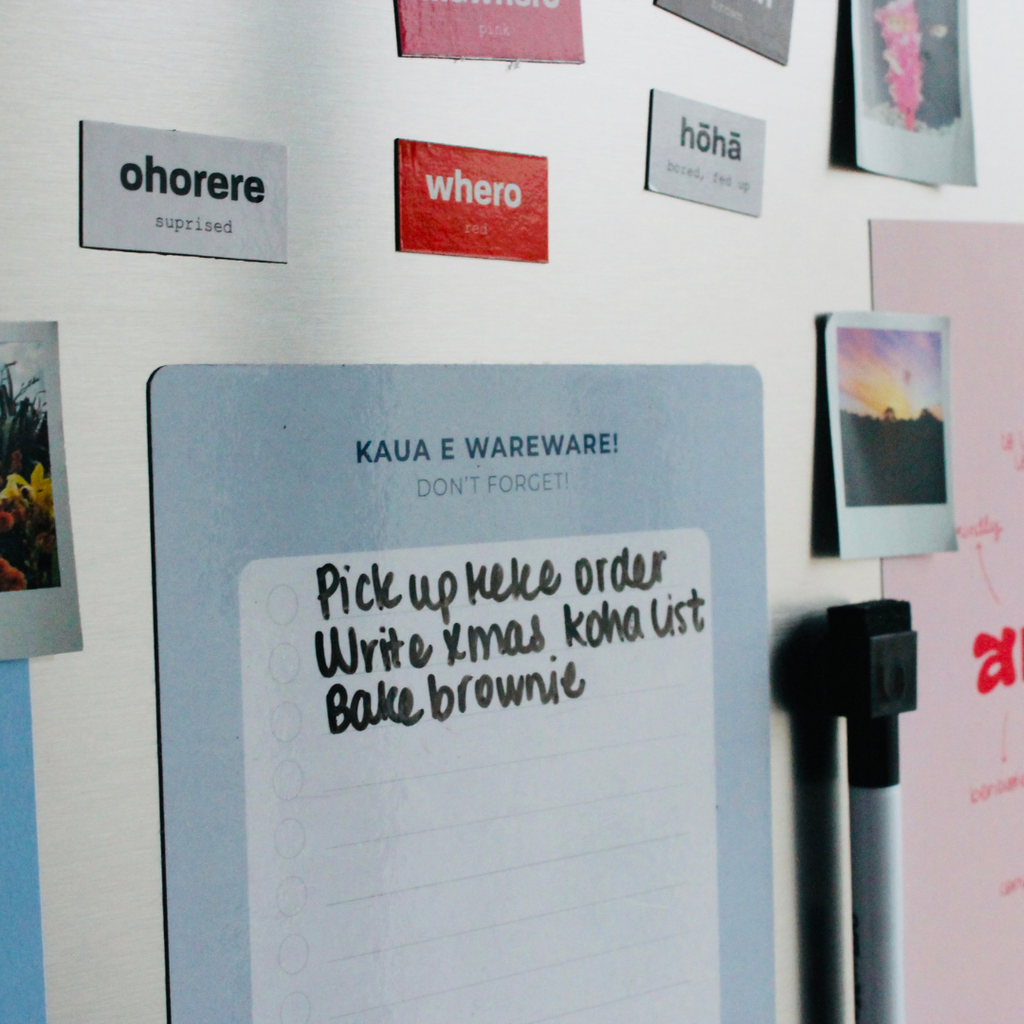 pink
ohorere
suprised
whero
red
hōhā
bored, fed up
KAUA E WAREWARE!
DON'T FORGET!
Pick up keke order
Write xmas koha list
Bake brownie